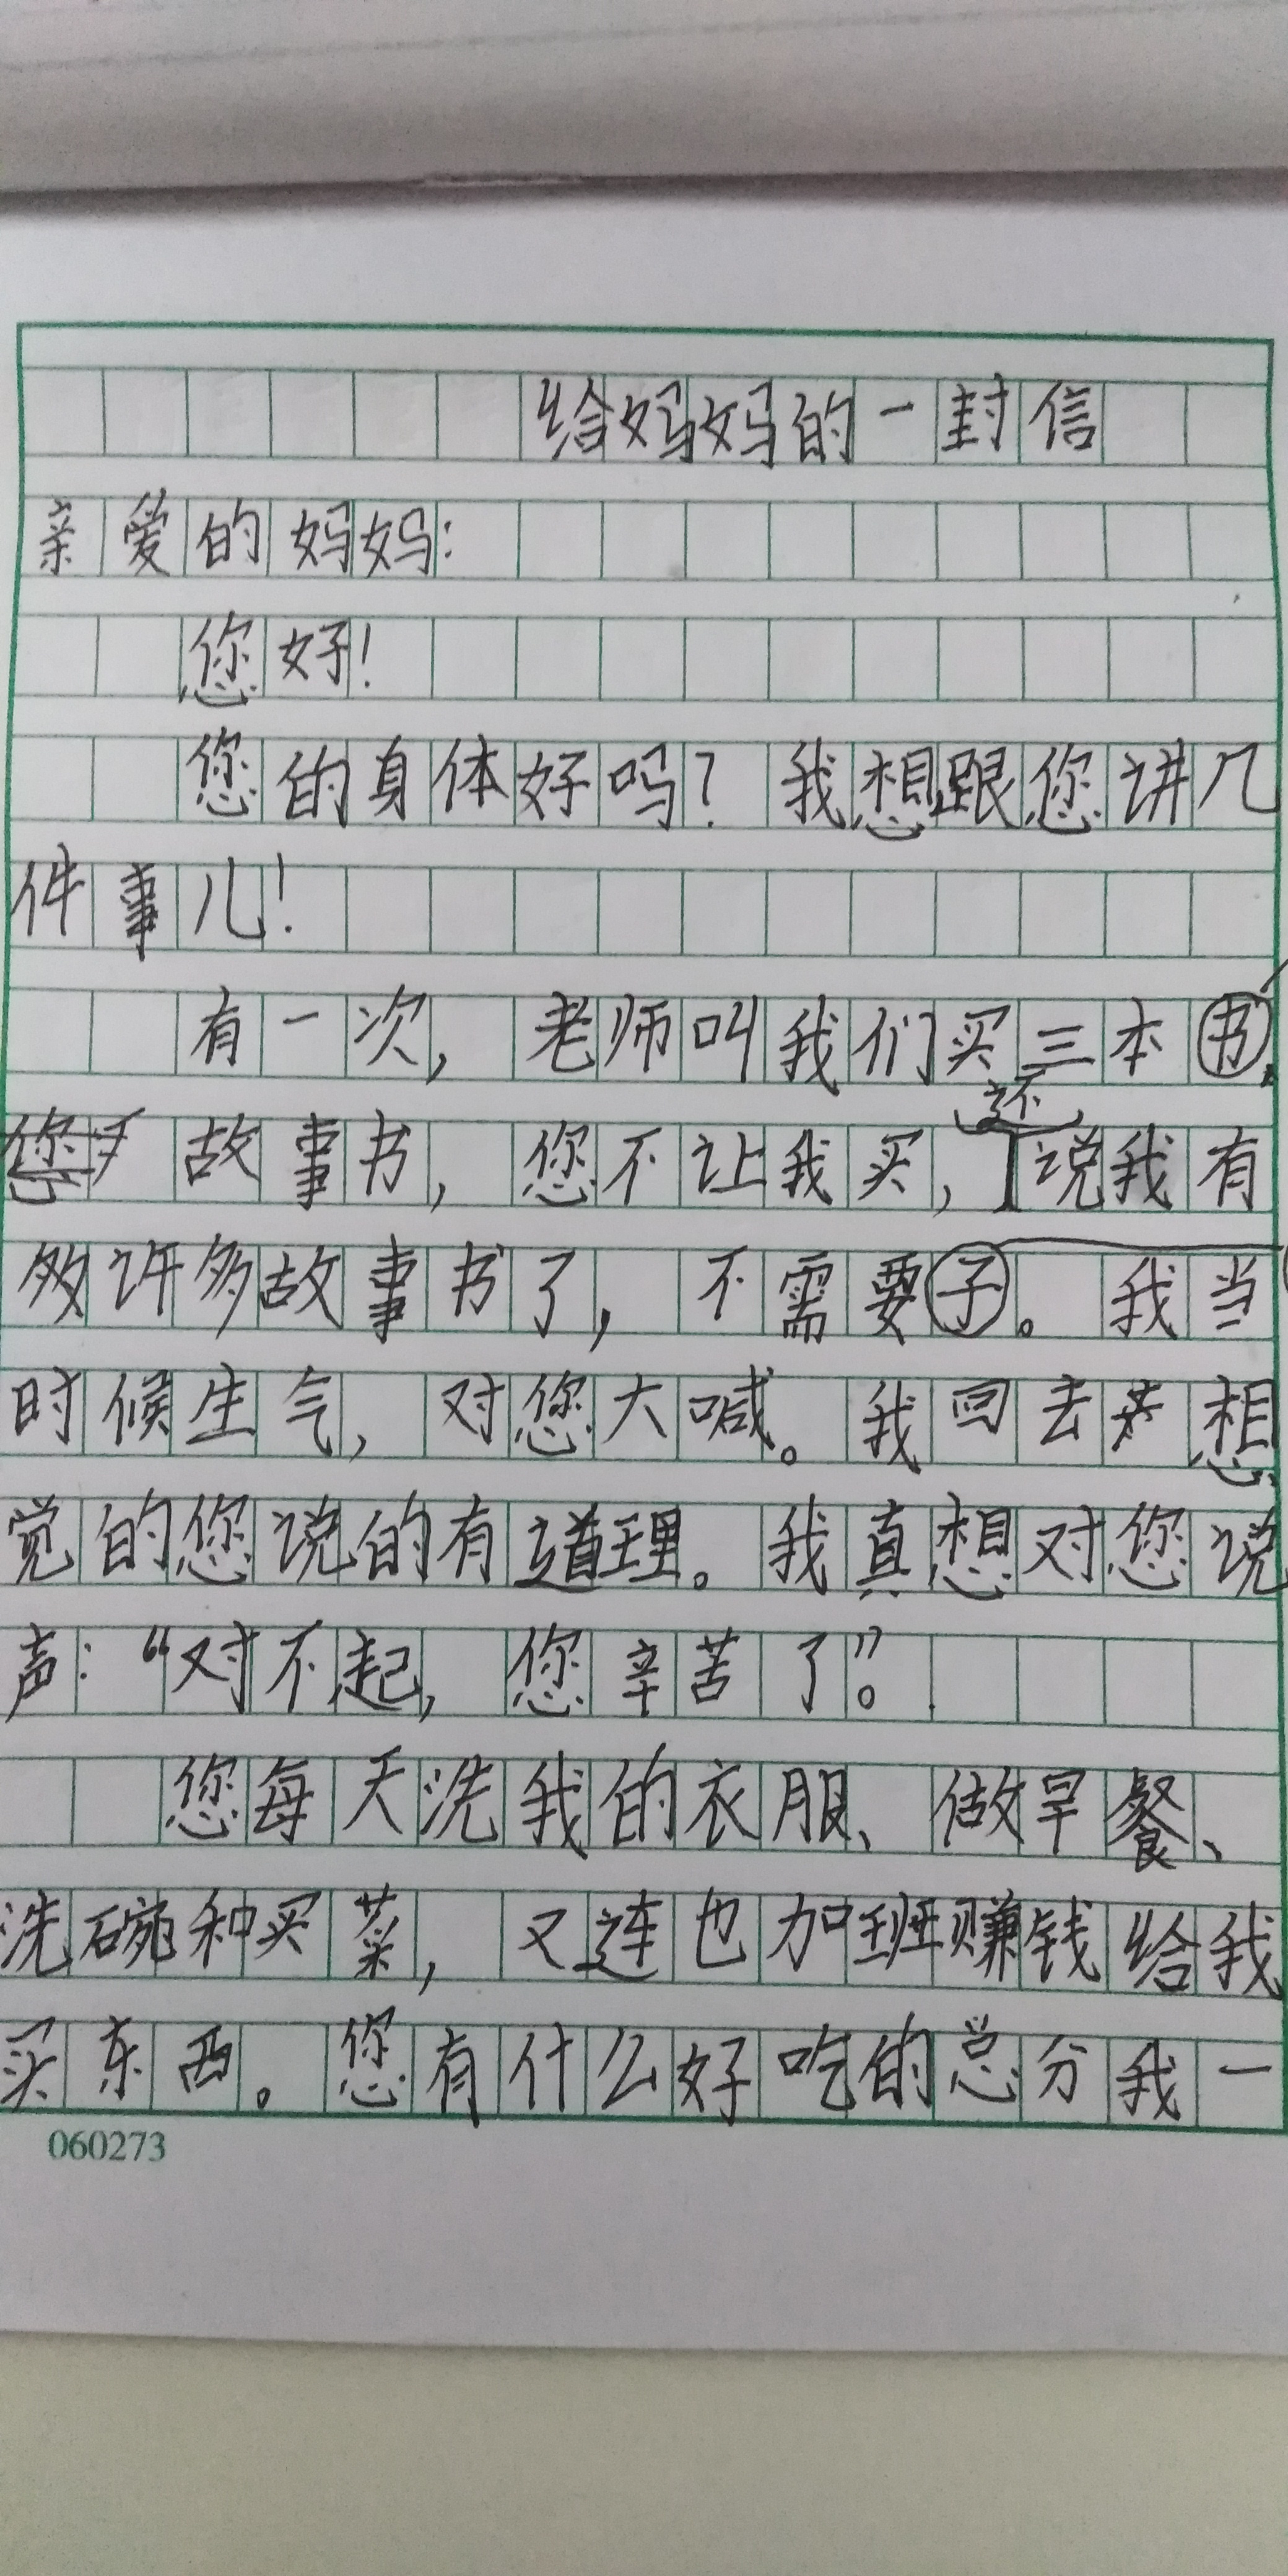 给妈妈的一封信
亲爱的妈妈:
您好!
您的身体好吗?我想跟您讲几
件事儿!
有一次,老师叫我们买三本书,
故事书,您不让我买,还说我有
许多故事书了,不需要子。我当
时候生气,对您大喊。我回去想
觉的您说的有道理。我真想对您说
声:“对不起,您辛苦了。”
您每天洗我的衣服、做早餐、
洗碗种买菜,又连也加班赚钱给我
买东西。您有什么好吃的总分我一
060273